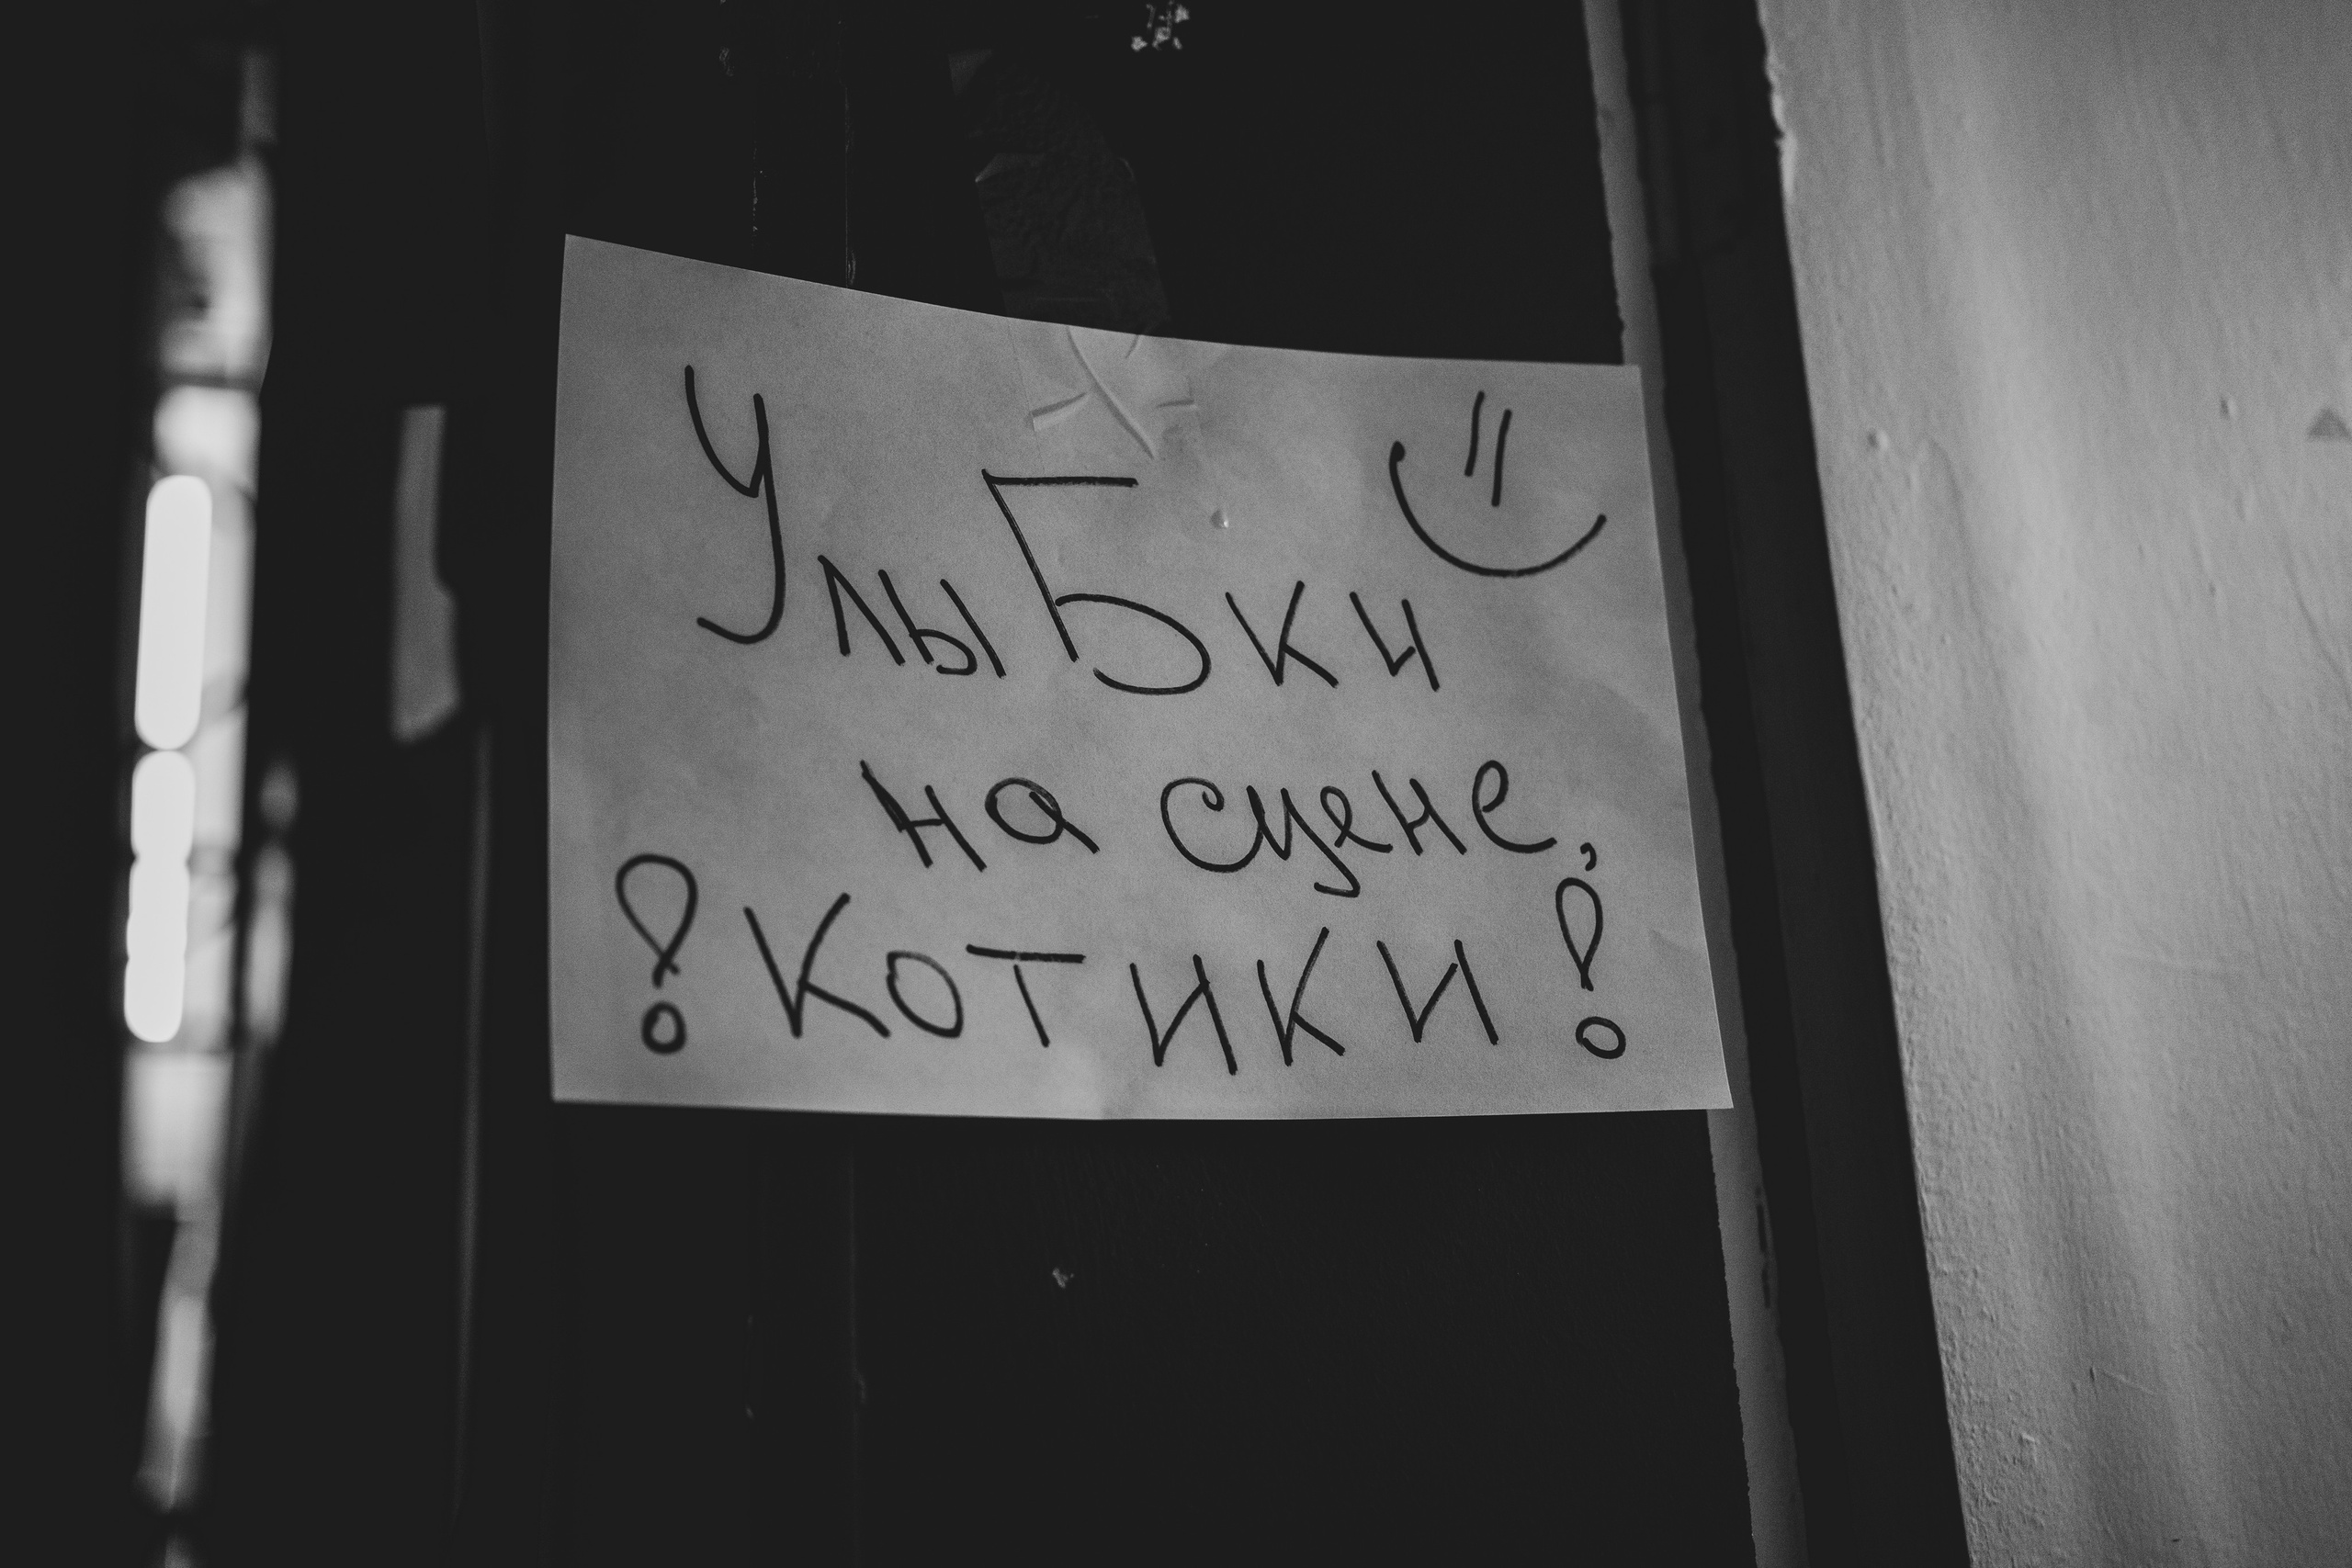 УлыБки
на сцене,
! Котики !